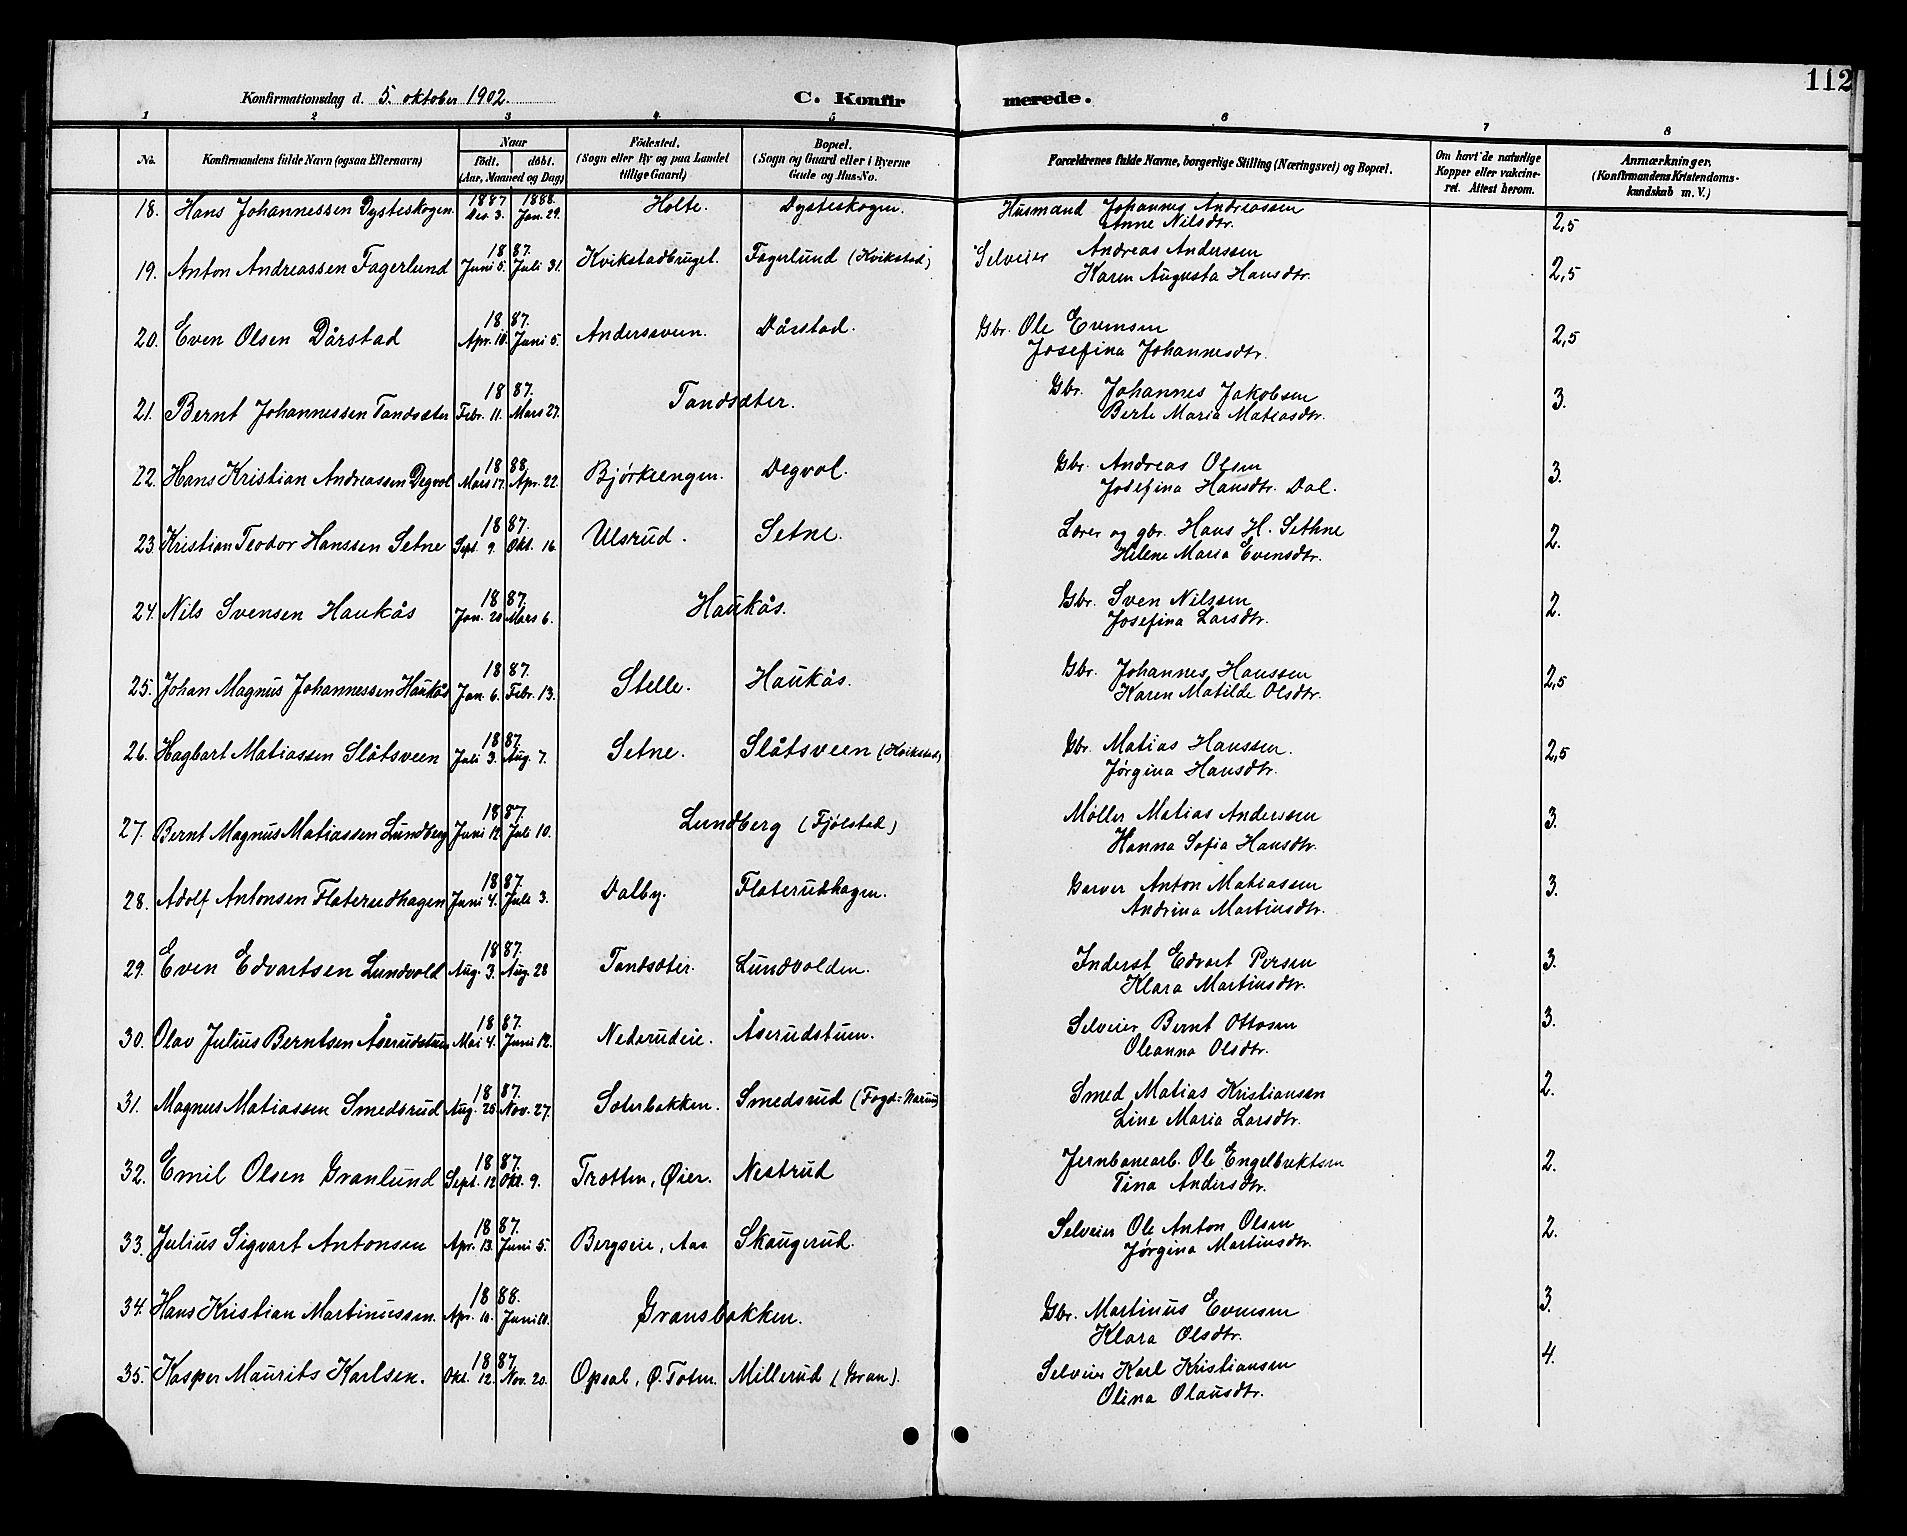 112
Konfirmationsdag d. 5. oktober 1902.
C. Konfirmerede.
1 2 3 4 5 6 7 8
No. | Konfirmandens fulde Navn (ogsaa Efternavn) | Naar født. døbt. (Aar, Maaned og Dag) | Fødested. (Sogn eller By og paa Landet tillige Gaard) | Bopæl. (Sogn og Gaard eller i Byerne Gade og Hus-No. | Forældrenes fulde Navne, borgerlige Stilling (Næringsvei) og Bopæl. | Om havt de naturlige Kopper eller vakcineret. Attest herom. | Anmærkninger. (Konfirmandens Kristendomskundskab m. V.)
18. Hans Johannessen Dysteskogen. 1887 Des. 3. 1888. Jan. 29. Holte. Dysteskogen. Husmand Johannes Andreassen
Anne Nilsdtr. 2,5
19. Anton Andreassen Fagerlund 1887. Juni 5. Juli 31. Kvikstadbruget. Fagerlund (Kvikstad) Selveier Andreas Anderssen
Karen Augusta Hansdtr. 2,5
20. Even Olsen Dårstad 1887. Apr. 10. Juni 5. Andersveen. Dårstad. Gbr. Ole Evensen
Josefina Johannesdtr. 2,5
21. Bernt Johannessen Tandsæter 1887. Febr. 11. Mars 27. Tandsæter. Gbr. Johannes Jakobsen
Berte Maria Matiasdtr. 3.
22. Hans Kristian Andreassen Degvol 1888. Mars 17. Apr. 22. Bjørkeengen. Degvol. Gbr. Andreas Olsen
Josefina Hansdtr. Dal. 3.
23. Kristian Teodor Hanssen Setne 1887. Sept. 9. Okt. 16. Ulsrud. Setne. Lærer og gbr. Hans H. Sethne
Helene Maria Evensdtr. 2.
24. Nils Svensen Haukås 1887. Jan. 20 Mars 6. Haukås. Gbr. Sven Nilssen
Josefina Larsdtr. 2.
25. Johan Magnus Johannessen Haukås 1887. Jan. 6. Febr. 13. Stelle. Haukås. Gbr. Johannes Hanssen
Karen Matilde Olsdtr. 2,5
26. Hagbart Matiassen Slåtsveen 1887. Juli 3. Aug. 7. Setne. Slåtsveen (Kvikstad) Gbr. Matias Hanssen.
Jørgina Hansdtr. 2,5
27. Bernt Magnus Matiassen Lundberg 1887. Juni 12. Juli 10. Lundberg (Fjølstad) Møller Matias Anderssen
Hanna Sofia Hansdtr. 3.
28. Adolf Antonsen Flaterudhagen 1887. Juni 4. Juli 3. Dalby. Flaterudhagen. Garver Anton Matiassen
Andrina Martinsdtr. 3.
29. Even Edvartsen Lundvold 1887. Aug. 3. Aug. 28 Tandsæter. Lundvolden. Inderst Edvart Persen
Klara Martinsdtr. 3.
30. Olav Julius Berntsen Åserudstuen 1887. Mai 4. Juni 12. Nederudeie. Åserudstuen. Selveier Bernt Ottosen
Oleanna Olsdtr. 3.
31. Magnus Matiassen Smedsrud 1887. Aug. 25 Nov. 27. Soterbakken. Smedsrud (Fogd=Narum) Smed Matias Kristiansen
Line Maria Larsdtr. 2.
32. Emil Olsen Granlund 1887. Sept. 12 Okt. 9. Trætten, Øier. Nestrud Jernbanearb. Ole Engelbrektsen
Tina Andersdtr. 2.
33. Julius Sigvart Antonsen 1887. Apr. 13. Juni 5. Bergseie, Aas. Skaugerud. Selveier Ole Anton Olsen
Jørgina Martinsdtr. 2.
34. Hans Kristian Martinussen. 1888. Apr. 10. Juni 10. Gransbakken. Gbr. Martinus Evensen
Klara Olsdtr. 3.
35. Kasper Maurits Karlsen. 1887. Okt. 12. Nov. 20. Opsal, Ø. Toten. Millerud (Gran). Selveier Karl Kristiansen
Olina Olausdtr. 4.